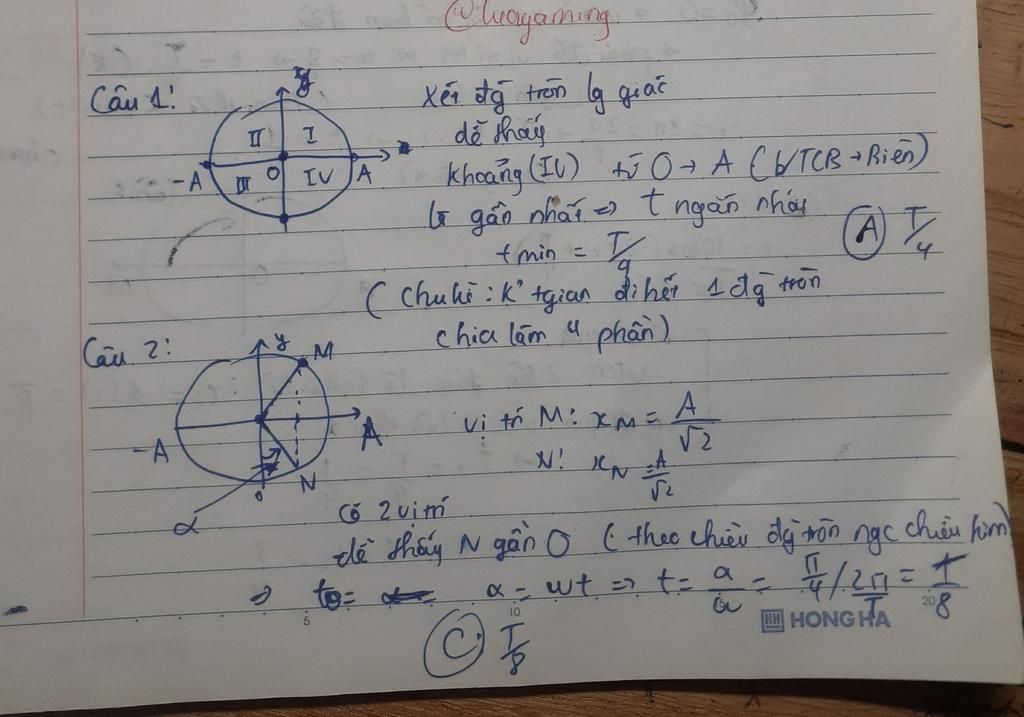 @luagaming
Câu 1:
y
II I
-A O A
III IV
xét đg tròn lg giác
dễ thấy
khoảng (IV) từ O → A (VTCB → Biên)
là gần nhất => t ngắn nhất
t min = T/4
(A) T/4
(Chu kì: K² tgian đi hết 1 đg tròn
chia làm 4 phần)
Câu 2:
y M
-A A
N
α
vị trí M: xM = A/√2
N: xN = A/√2
có 2 vị trí
dễ thấy N gần O (theo chiều đg tròn ngc chiều kim)
=> α = ωt => t = α/ω = π/4 / 2π/T = T/8
(C) T/8
HH HONG HA
5 10 20